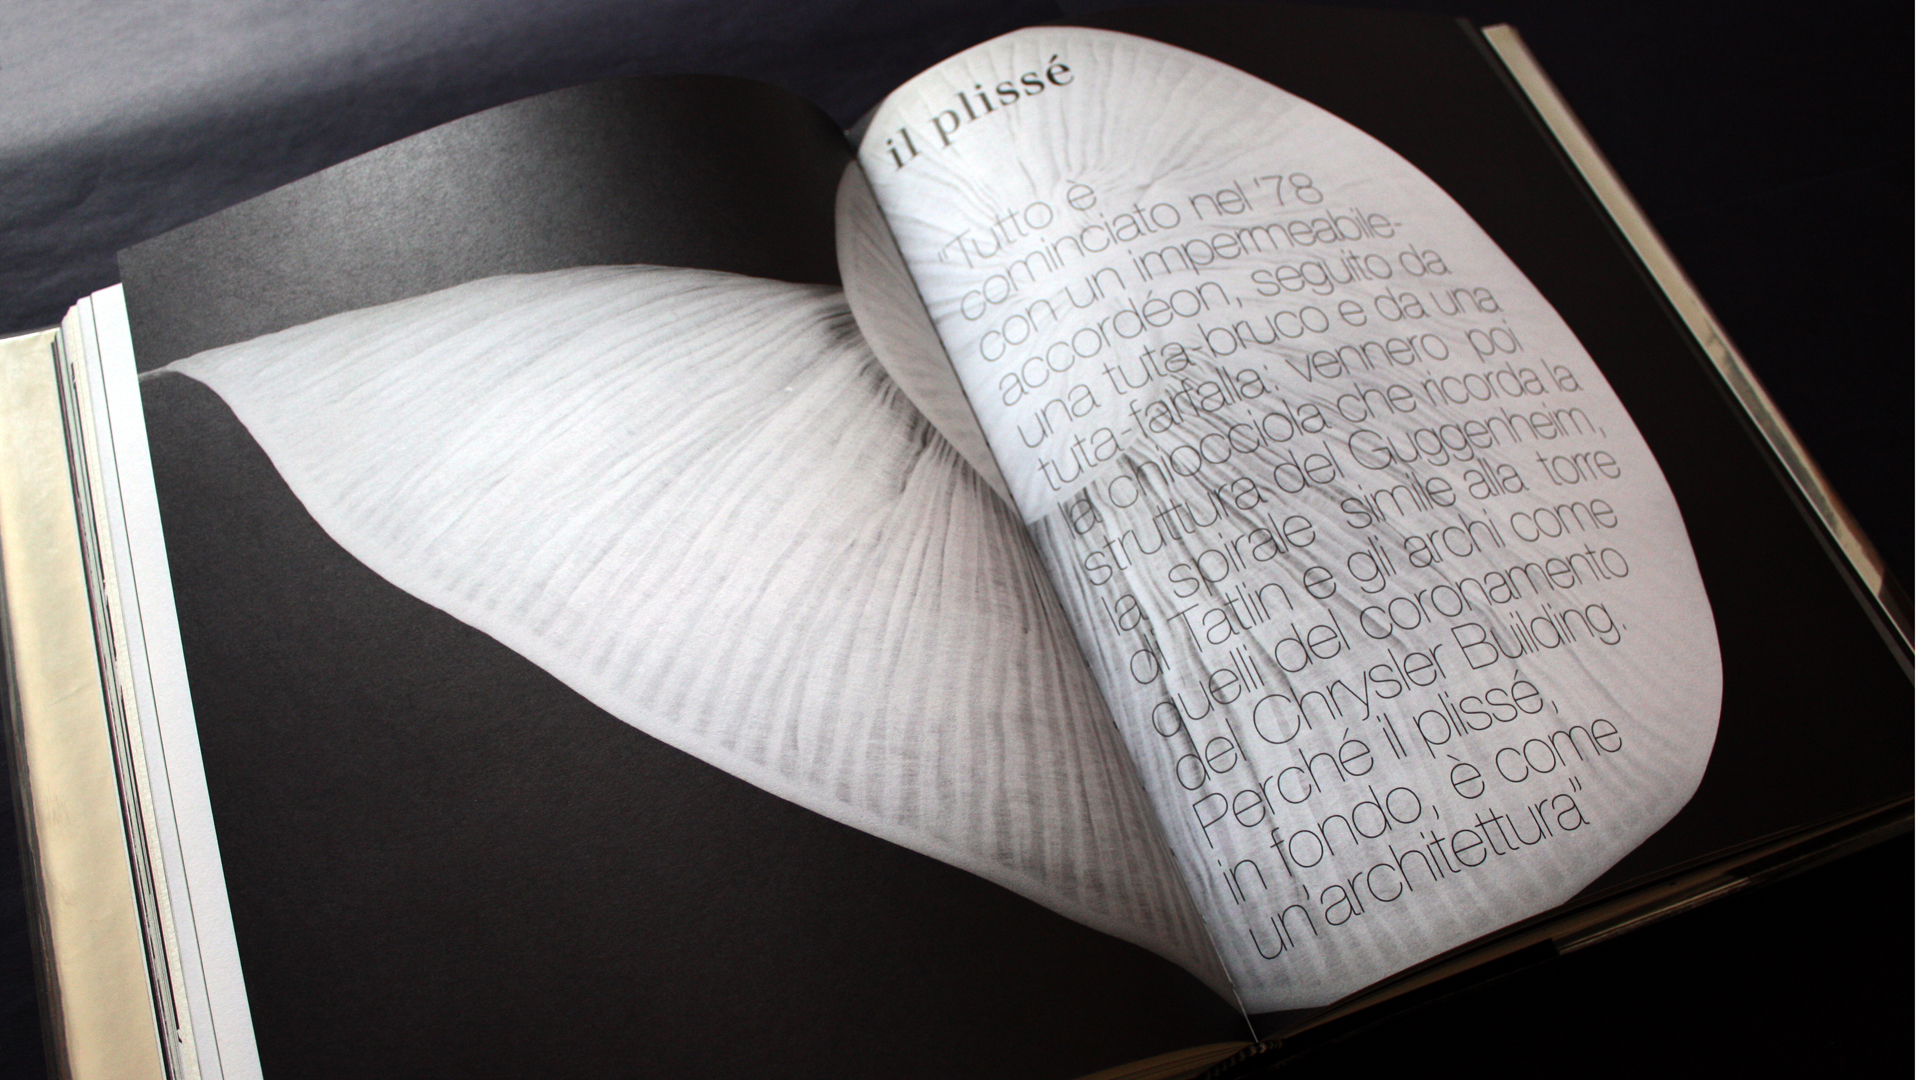 il plissé
"Tutto è
cominciato nel '78
con un impermeabile-
accordéon, seguito da
una tuta-bruco e da una
tuta-farfalla: vennero poi
la chiocciola che ricorda la
struttura del Guggenheim,
la spirale simile alla torre
di Tatlin e gli archi come
quelli del coronamento
del Chrysler Building.
Perché il plissé,
in fondo, è come
un'architettura"